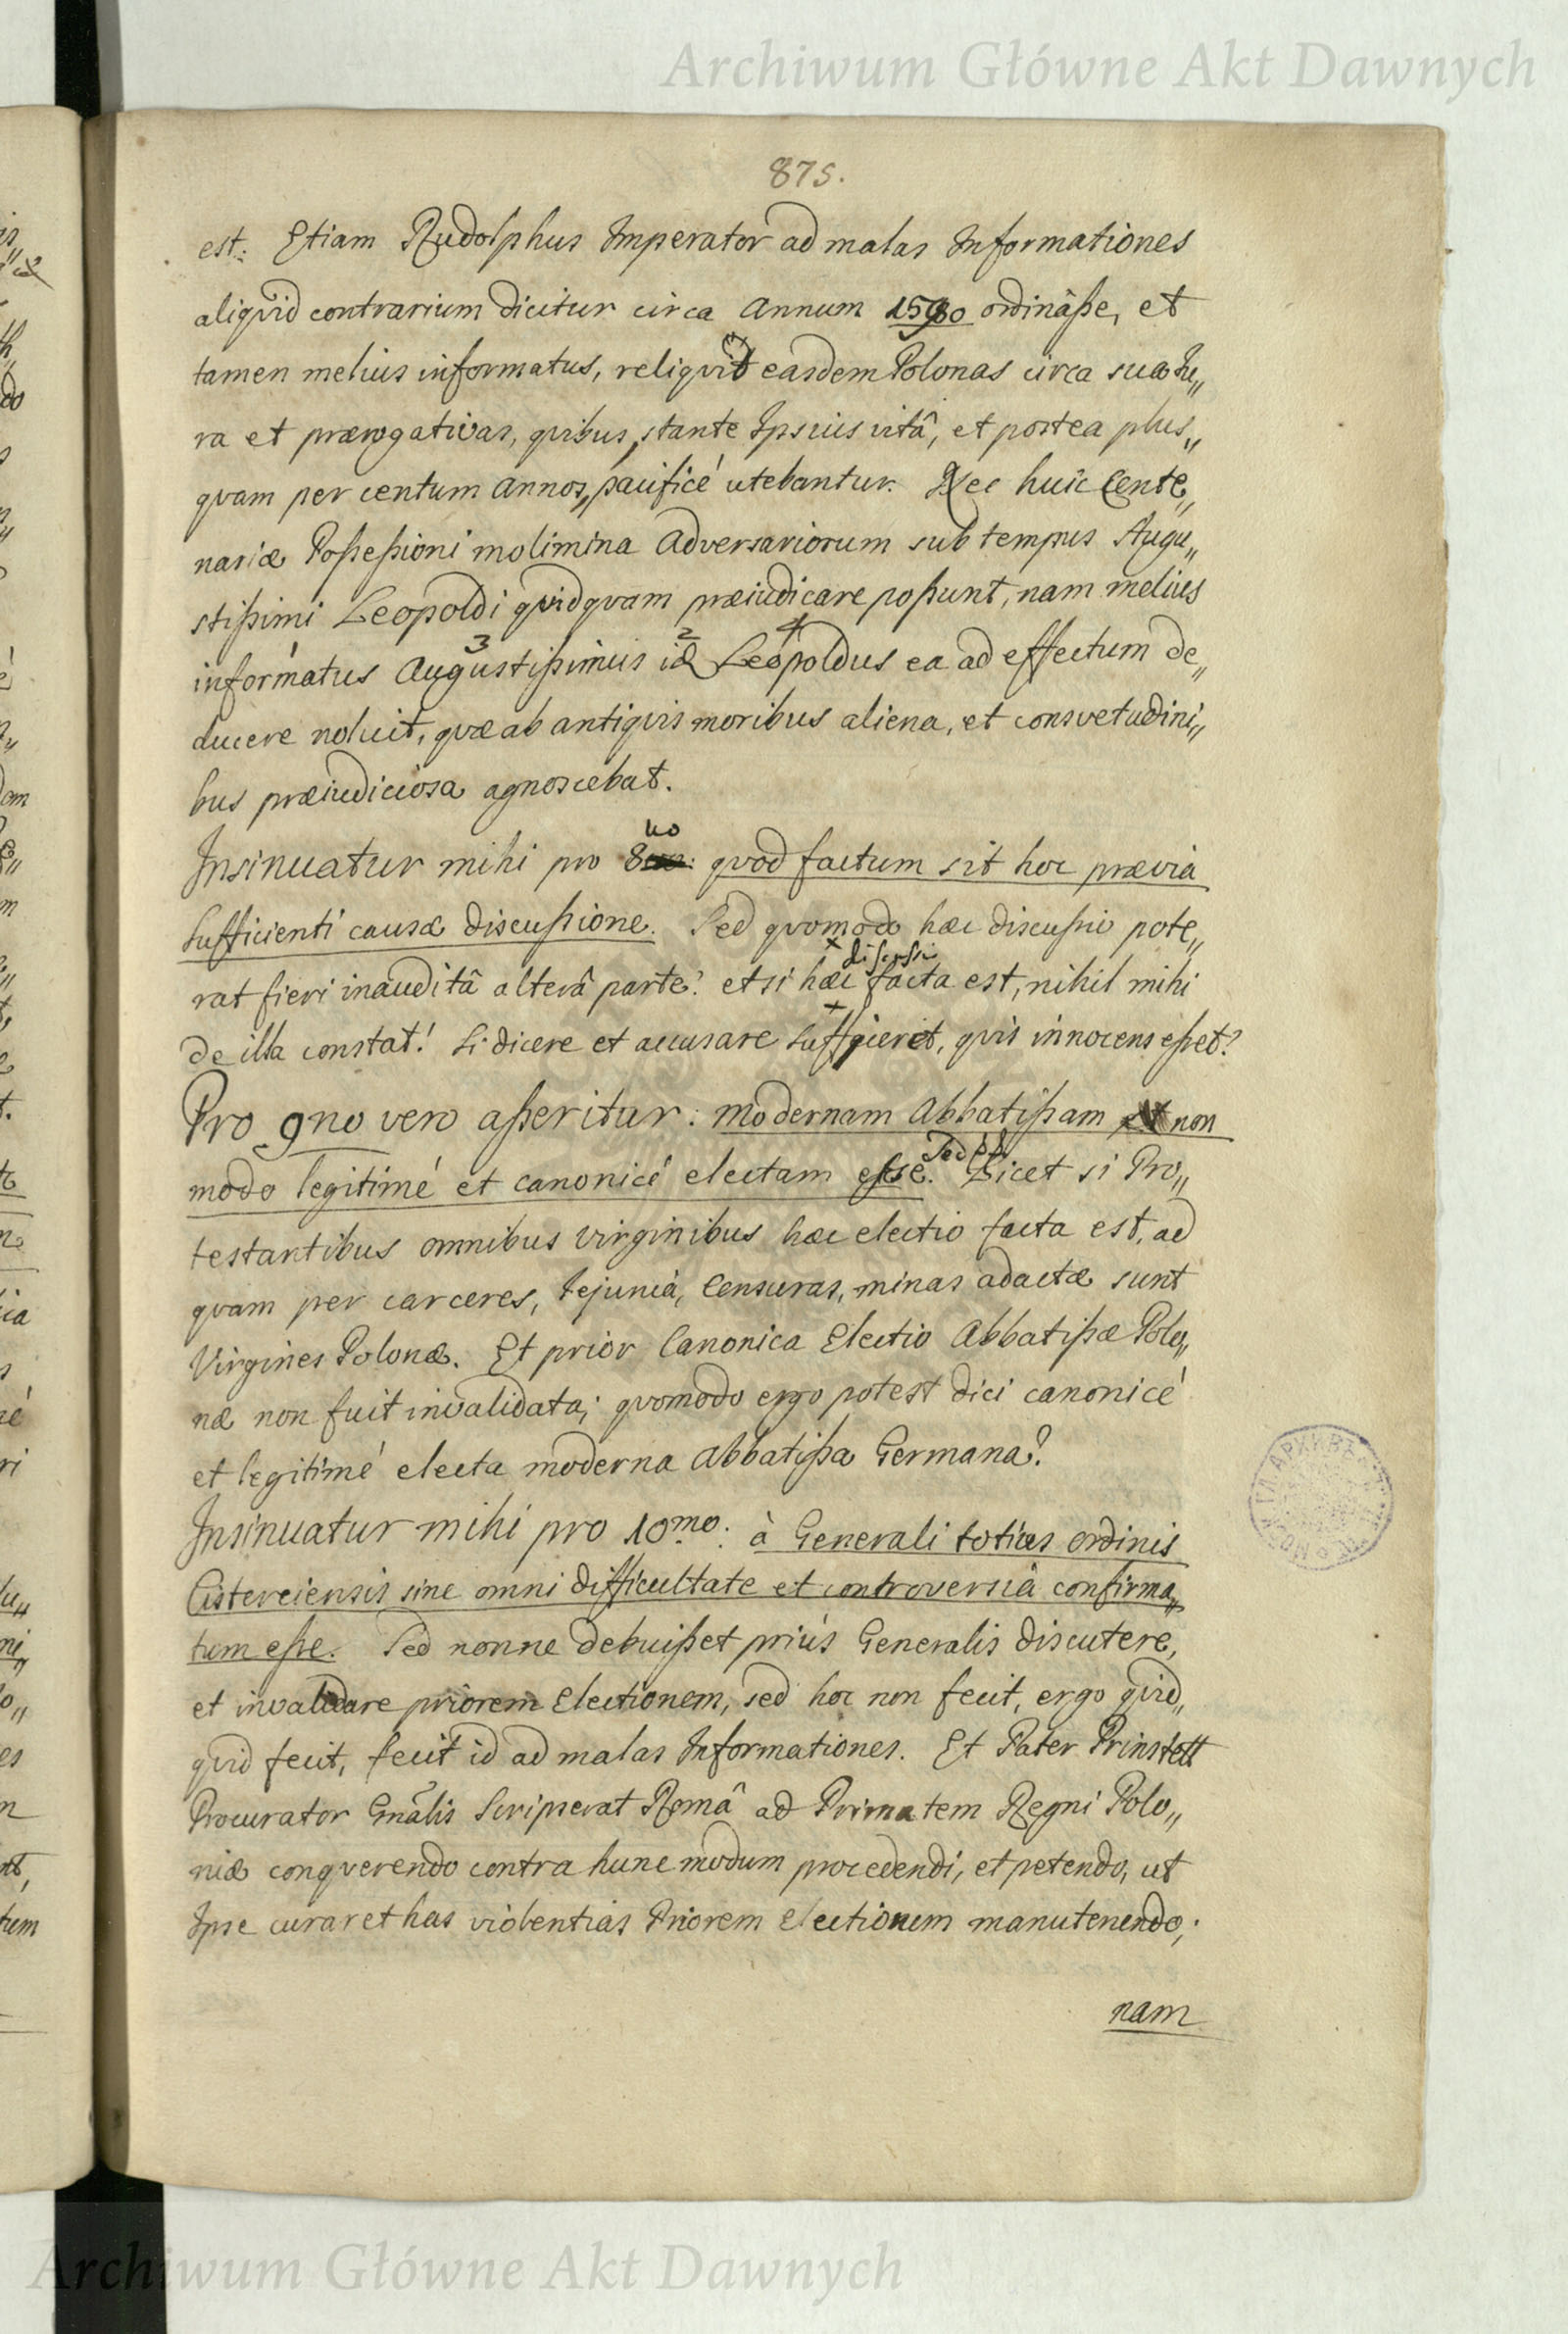 Archiwum Główne Akt Dawnych
875.
est: Etiam Rudolphus Imperator ad malas Informationes
aliqvid contrarium dicitur circa Annum 1590 ordinâsse, et
tamen melius informatus, reliqvit easdem Polonas circa sua Iu„
ra et prærogativas, qvibus, stante Ipsius vitâ, et postea plus„
qvam per centum Annos, pacificé utebantur. Nec huic Cente„
nariæ Possessioni molimina Adversariorum sub tempus Augu„
stissimi Leopoldi qvidqvam præiudicare possunt, nam melius
3 2 4
informatus Augustissimus id Leopoldus ea ad effectum de„
ducere noluit, qvæ ab antiqvis moribus aliena, et consvetudini„
bus præiudiciosa agnoscebat.
Insinuatur mihi pro 8vo qvod factum sit hoc prævia
sufficienti causæ discussione. Sed qvomodo hæc discussio pote„
discussio
rat fieri inauditâ alterâ parte? et si hæc facta est, nihil mihi
de illa constat! Si dicere et accusare sufficeret, qvis innocens esset?
Pro 9no vero asseritur: modernam Abbatissam non
modo legitimé et canonicé electam esse. Licet si Pro„
testantibus omnibus virginibus hæc electio facta est, ad
qvam per carceres, Iejunia, Censuras, minas adactæ sunt
Virgines Polonæ. Et prior Canonica Electio Abbatissæ Polo„
næ non fuit invalidata; qvomodo ergo potest dici canonicé
et legitimé electa moderna Abbatissa Germana?
Insinuatur mihi pro 10mo: à Generali totius ordinis
Cisterciensis sine omni difficultate et controversia confirma„
tum esse. Sed nonne debuisset priús Generalis discutere,
et invalidare priorem Electionem, sed hoc non fecit, ergo qvid„
qvid fecit, fecit id ad malas Informationes. Et Pater Prinstett
Procurator Gnãlis Scripserat Româ ad Primatem Regni Polo„
niæ conqverendo contra hunc modum procedendi, et petendo, ut
Ipse curaret has violentias Priorem Electionem manutenendo;
nam
Archiwum Główne Akt Dawnych